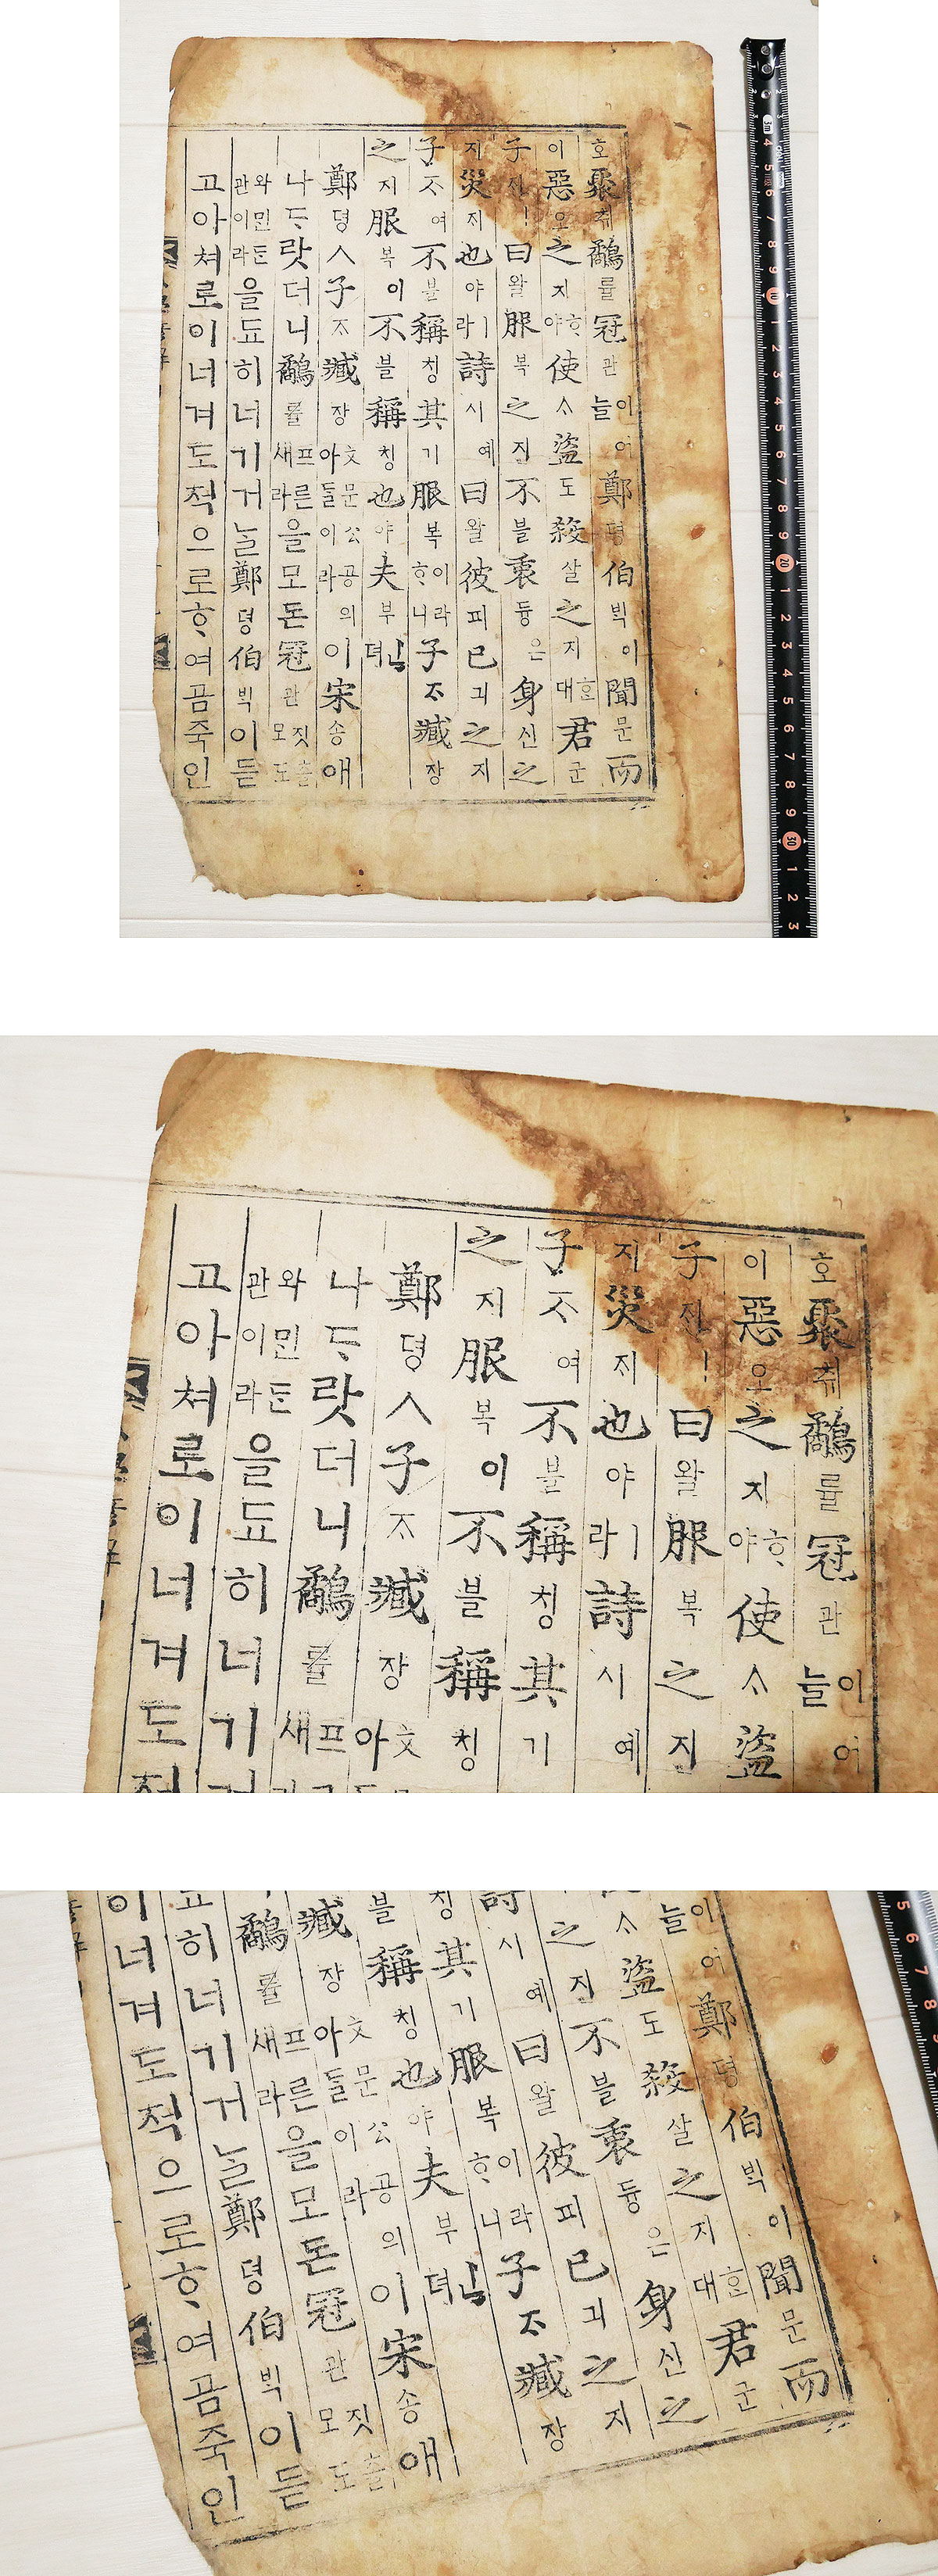 호聚취鷸률冠관이어늘鄭뎡伯ᄇᆡᆨ이聞문而
이惡오之지ᄒᆞ야使ᄉᆞ盜도殺살之지ᄒᆞᆫ대君군
子ᄌᆞㅣ曰왈服복之진不블衷듕은身신之
지災ᄌᆡ也야ㅣ라詩시예曰왈彼피己긔之지
子ᄌᆞ여不블稱칭其기服복이라ᄒᆞ니子ᄌᆞ臧장
之지服복이不블稱칭也야夫부ᅟᅵᆫ뎌
鄭뎡人子ᄌᆞ臧장文문公공아ᄃᆞᆯ이라의이宋송애
나ᄃᆞ랏더니鷸률프른새라을모돈冠관짓츨모도
와민ᄃᆞᆫ관이라을됴히너기거ᄂᆞᆯ鄭뎡伯ᄇᆡᆨ이듣
고아쳐로이너겨도적으로ᄒᆞ여곰죽인